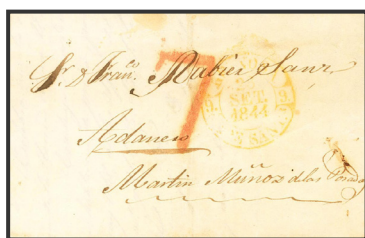 Sr. Dn. Franco. Rabier Sanz
7
SET
1844
Adanero
Martin Muñoz de las Posadas